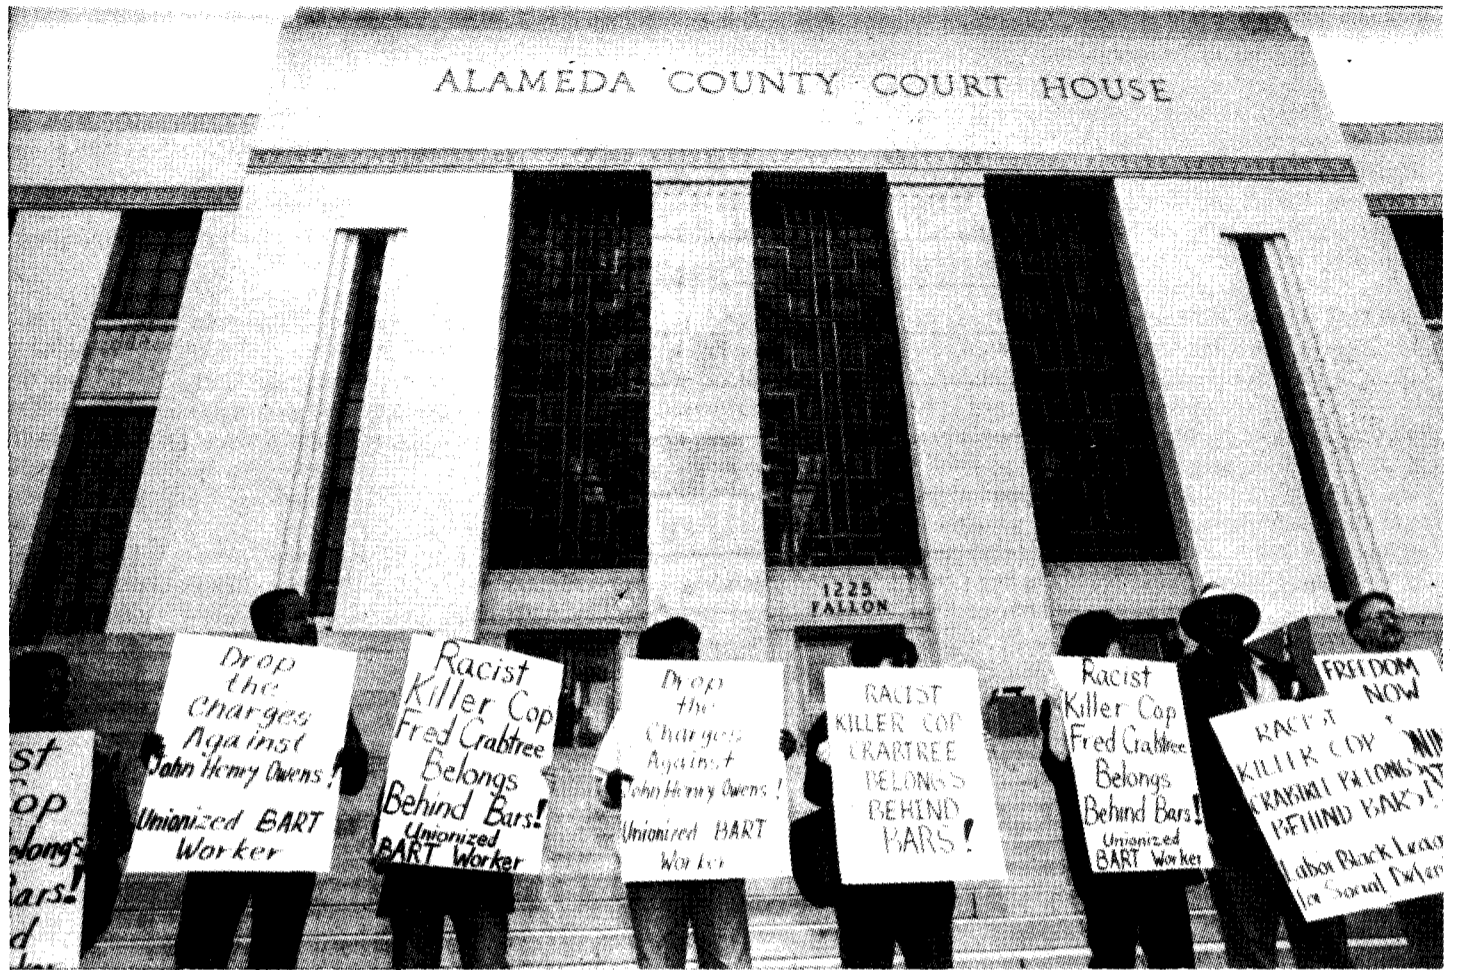 ALAMEDA COUNTY COURT HOUSE
1225
FALLON
st
Cop
elongs
Bars!
d
ker
Drop
the
Charges
Against
John Henry Owens!
Unionized BART
Worker
Racist
Killer Cop
Fred Crabtree
Belongs
Behind Bars!
Unionized
BART Worker
Drop
the
Charges
Against
John Henry Owens!
Unionized BART
Worker
RACIST
KILLER COP
CRABTREE
BELONGS
BEHIND
BARS!
Racist
Killer Cop
Fred Crabtree
Belongs
Behind Bars!
Unionized
BART Worker
FREEDOM
NOW
RACIST
KILLER COP
CRABTREE BELONGS
BEHIND BARS!
Labor Black Leag
for Social Defen